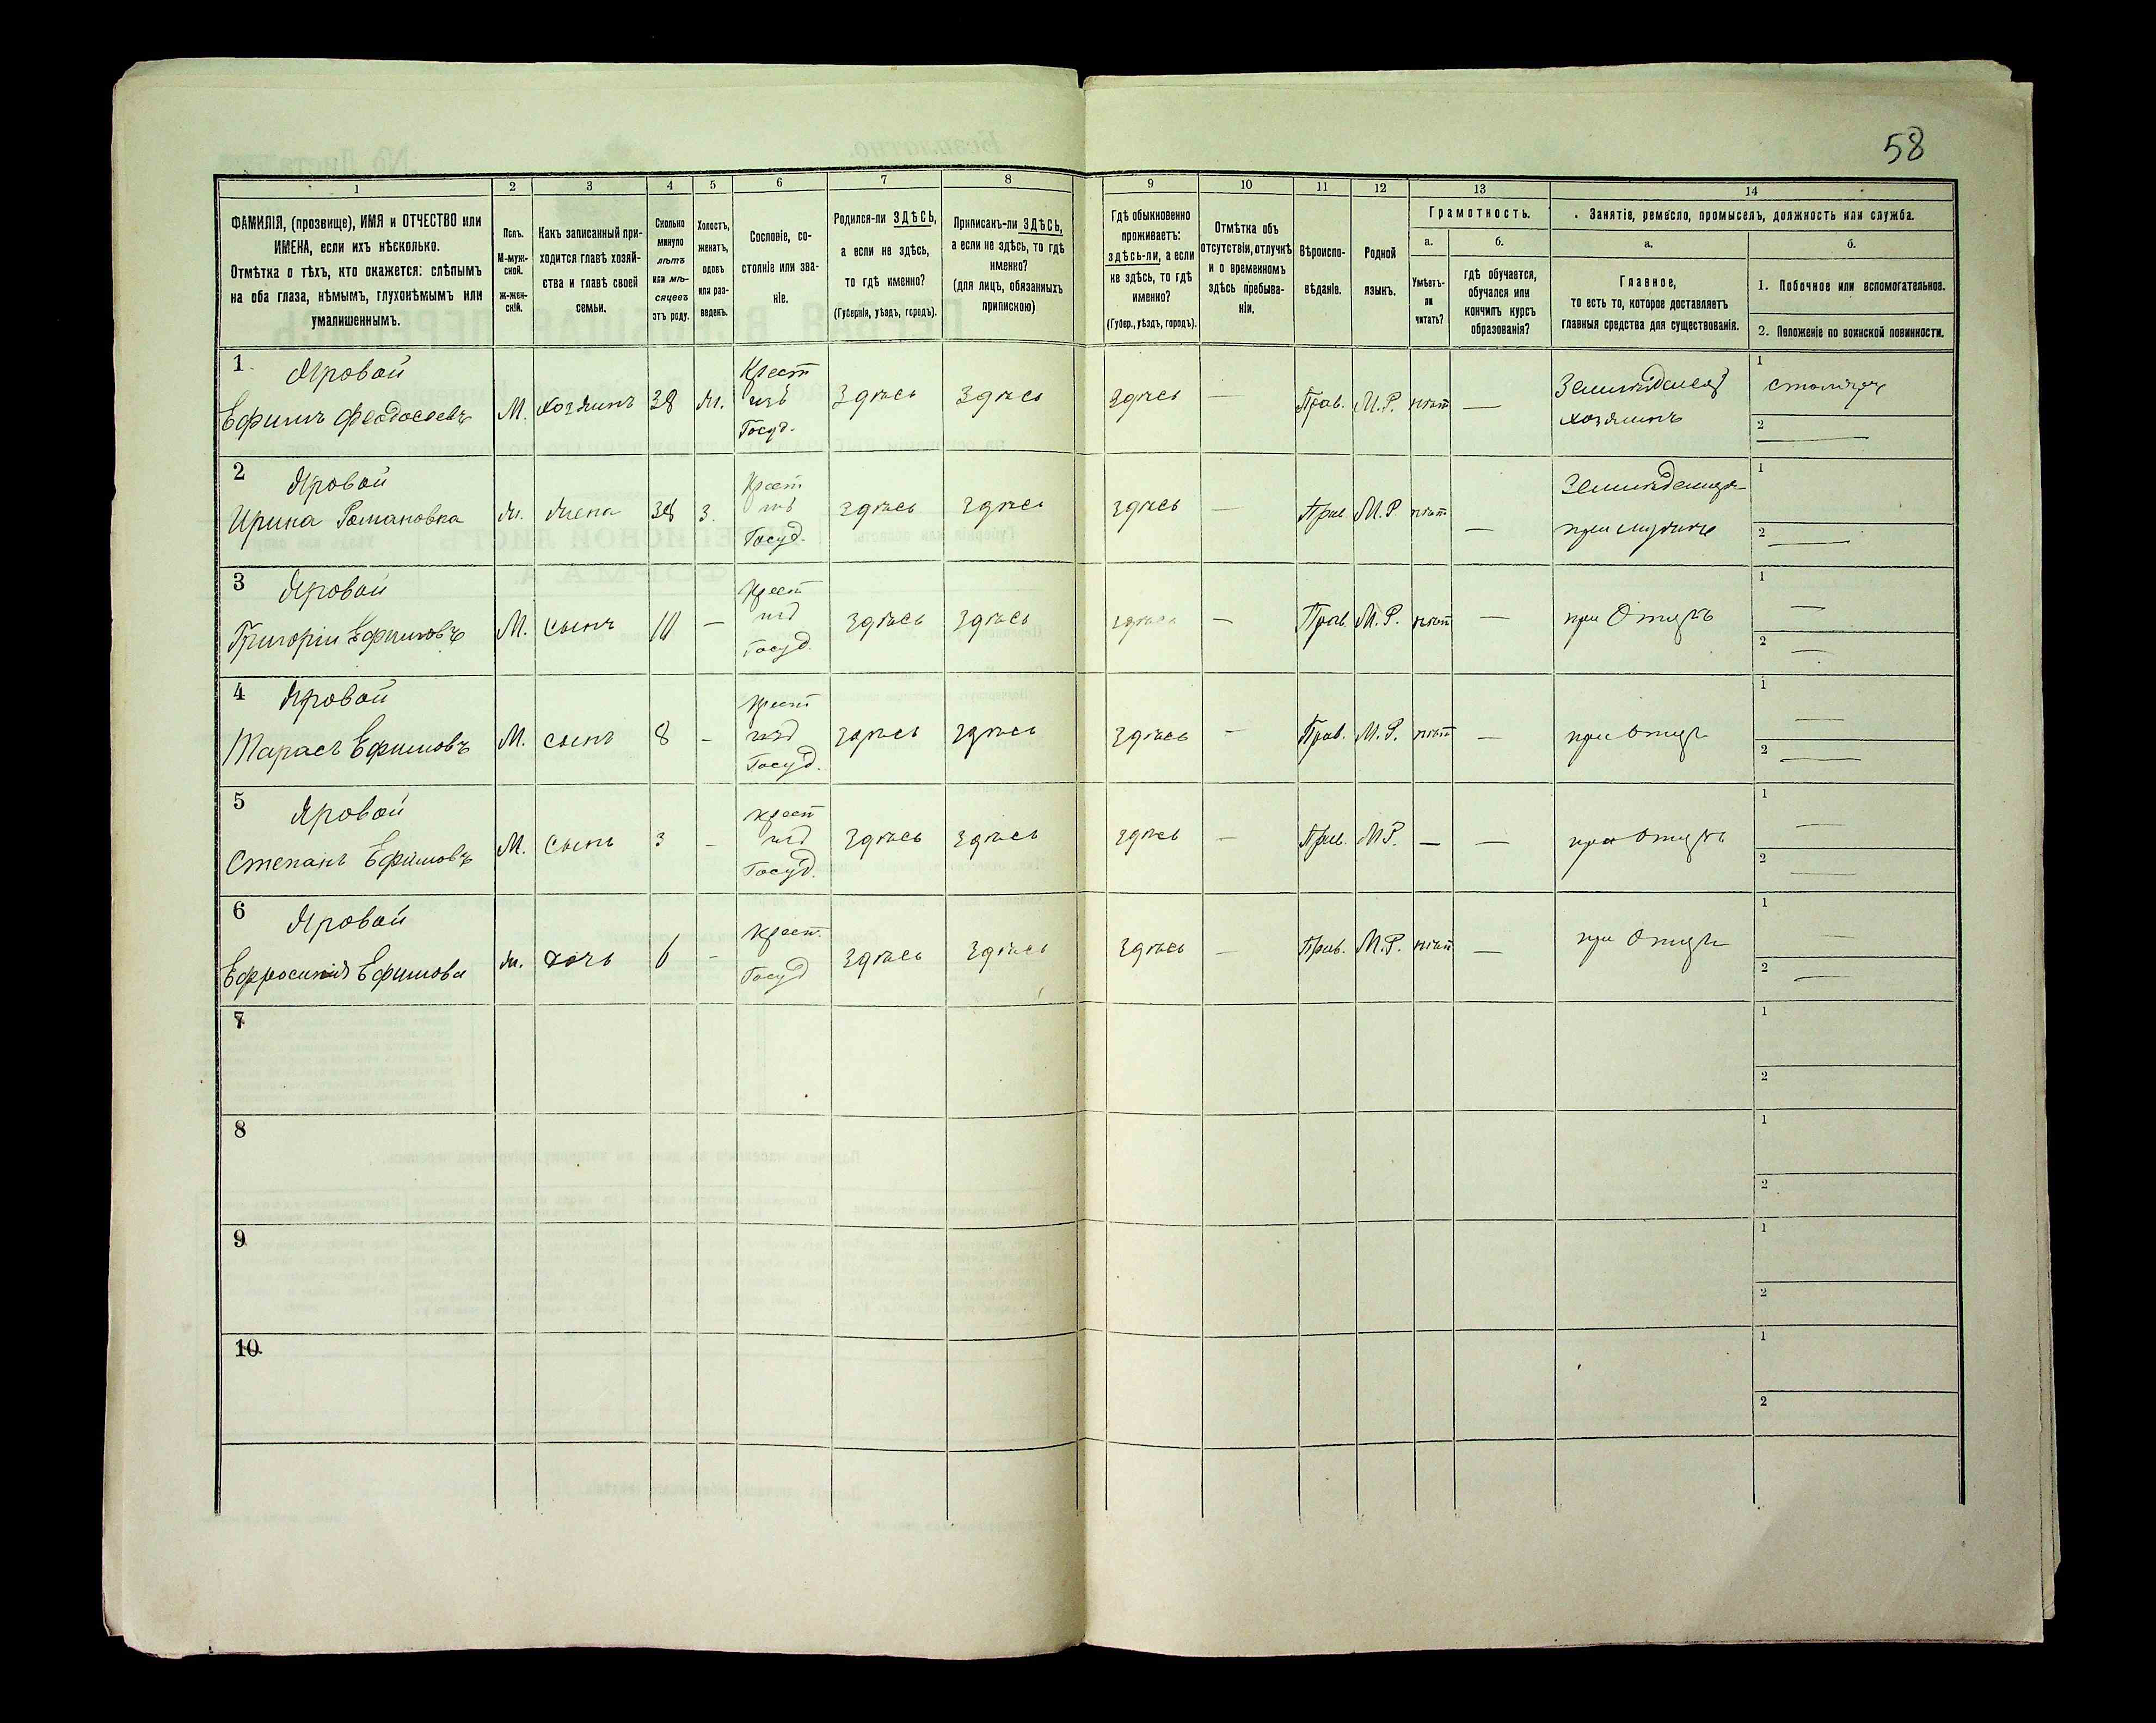 58
1 2 3 4 5 6 7 8 9 10 11 12 13 14
ФАМИЛІЯ, (прозвище), ИМЯ и ОТЧЕСТВО или
ИМЕНА, если ихъ нѣсколько.
Отмѣтка о тѣхъ, кто окажется: слѣпымъ
на оба глаза, нѣмымъ, глухонѣмымъ или
умалишеннымъ.
Полъ.
М-муж-
ской.
ж-жен-
скій.
Какъ записанный при-
ходится главѣ хозяй-
ства и главѣ своей
семьи.
Сколько
минуло
лѣтъ
или мѣ-
сяцевъ
отъ роду.
Холостъ,
женатъ,
вдовъ
или раз-
веденъ.
Сословіе, со-
стояніе или зва-
ніе.
Родился-ли ЗДѢСЬ,
а если не здѣсь,
то гдѣ именно?
(Губернія, уѣздъ, городъ).
Приписанъ-ли ЗДѢСЬ,
а если не здѣсь, то гдѣ
именно?
(для лицъ, обязанныхъ
припискою)
Гдѣ обыкновенно
проживаетъ:
здѣсь-ли, а если
не здѣсь, то гдѣ
именно?
(Губер., уѣздъ, городъ).
Отмѣтка объ
отсутствіи, отлучкѣ
и о временномъ
здѣсь пребыва-
ніи.
Вѣроиспо-
вѣданіе.
Родной
языкъ.
Грамотность.
а.
Умѣетъ-
ли
читать?
б.
гдѣ обучается,
обучался или
кончилъ курсъ
образованія?
Занятіе, ремесло, промыселъ, должность или служба.
а.
Главное,
то есть то, которое доставляетъ
главныя средства для существованія.
б.
1. Побочное или вспомогательное.
2. Положеніе по воинской повинности.
1 Яровой
Ефимъ Феодосеевъ М. хозяинъ 38 ж. Крест изъ Госуд. Здѣсь Здѣсь Здѣсь — Прав. М.Р. нѣтъ — хозяинъ 1 2 —
2 Яровой
Ирина Романовна ж. жена 38 з. Крест изъ Госуд. здѣсь здѣсь здѣсь — Прав. М.Р. нѣтъ — при мужѣ 1 2 —
3 Яровой
Григорій Ефимовъ М. сынъ — Крест изъ Госуд. здѣсь здѣсь здѣсь — Прав. М.Р. нѣтъ — при Отцѣ 1 — 2 —
4 Яровой
Тарасъ Ефимовъ М. сынъ 8 — Крест изъ Госуд. здѣсь здѣсь здѣсь — Прав. М.Р. нѣтъ — при Отцѣ 1 — 2 —
5 Яровой
Степанъ Ефимовъ М. сынъ 3 — крест изъ Госуд. здѣсь здѣсь здѣсь — Прав. М.Р. — — при Отцѣ 1 — 2 —
6 Яровой
Ефросинія Ефимова ж. дочь 6 — Крест. Госуд здѣсь здѣсь здѣсь — Прав. М.Р. нѣтъ — при Отцѣ 1 — 2 —
7 1 2
8 1 2
9 1 2
10 1 2